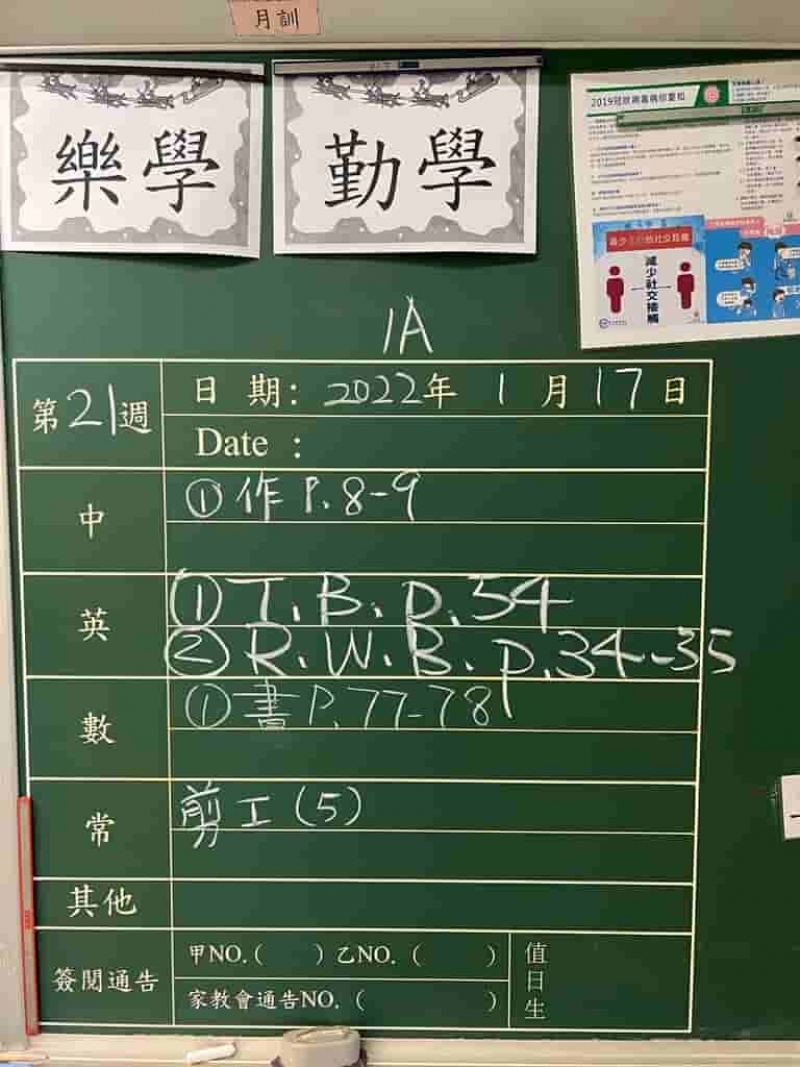 月訓
樂學
勤學
2019冠狀病毒病你要知
減少社交接觸
1A
第21週
日 期: 2022年 1 月 17 日
Date :
中
① 作 P. 8-9
英
① T. B. p. 54
② R. W. B. p. 34-35
數
① 書 P. 77-78
常
剪工 (5)
其他
簽閱通告
甲NO.( ) 乙NO. ( )
家教會通告NO. ( )
值日生